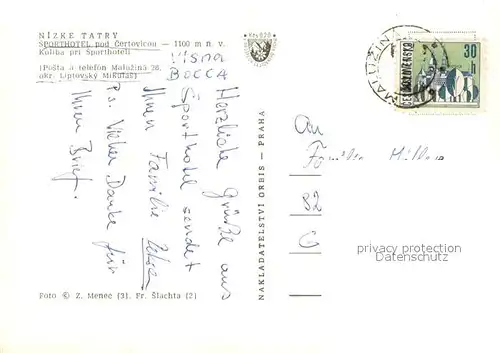 NÍZKE TATRY
ŠPORTHOTEL pod Čertovicou — 1100 m n. v.
Koliba pri Športhoteli
(Pošta a telefón Malužiná 28,
okr. Liptovský Mikuláš)
VISMA
BOCCA
Herzliche Grüße aus
Sporthotel sendet
Ihnen Familie
P.s. Vielen Danke für
Ihren Brief.
NAKLADATELSTVÍ ORBIS — PRAHA
MALUŽIN
30
h
An
Familie
82
G
privacy protection
Datenschutz
Foto © Z. Menec (3), Fr. Šlachta (2)